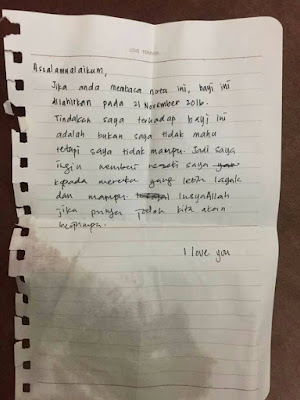 Assalamualaikum,
Jika anda membaca nota ini, bayi ini
dilahirkan pada 21 November 2016.
Tindakan saya terhadap bayi ini
adalah bukan saya tidak mahu
tetapi saya tidak mampu. Jadi saya
ingin memberi saya
kepada mereka yang lebih layak
dan mampu. InsyaAllah
jika punya jodoh kita akan
berjumpa.
I love you